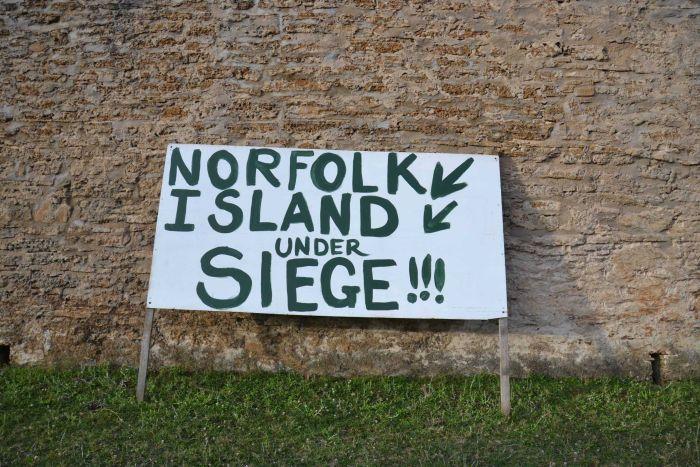 NORFOLK ↙
ISLAND ↙
UNDER
SIEGE!!!